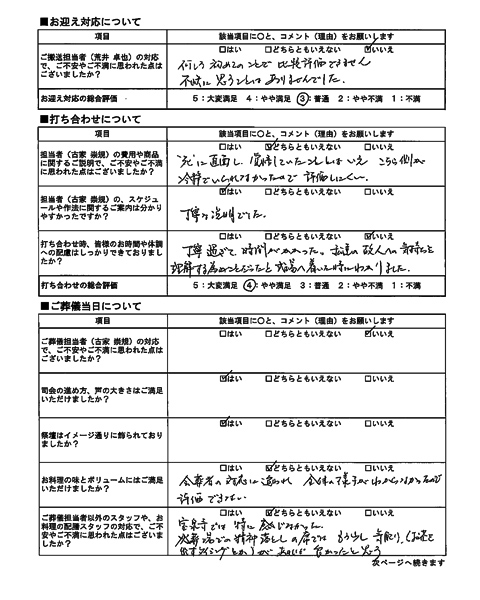 ■お迎え対応について
項目 該当項目に○と、コメント（理由）をお願いします
ご搬送担当者（荒井 卓也）の対応で、ご不安やご不満に思われた点はございましたか？
□はい □どちらともいえない ☑いいえ
何しろ初めてのことで比較評価できません
不快に思うことはありませんでした.
お迎え対応の総合評価 5：大変満足 4：やや満足 ③：普通 2：やや不満 1：不満
■打ち合わせについて
項目 該当項目に○と、コメント（理由）をお願いします
担当者（古家 崇規）の費用や商品に関するご説明で、ご不安やご不満に思われた点はございましたか？
□はい ☑どちらともいえない □いいえ
死に直面し、覚悟していたこととはいえ こちら側が
冷静でいられてなかったので評価しにくい.
担当者（古家 崇規）の、スケジュールや作法に関するご案内は分かりやすかったですか？
☑はい □どちらともいえない □いいえ
丁寧な説明でした.
打ち合わせ時、皆様のお時間や体調への配慮はしっかりできておりましたか？
□はい □どちらともいえない ☑いいえ
丁寧過ぎて時間がかかった.
故人
理解する為
打ち合わせの総合評価 5：大変満足 ④：やや満足 3：普通 2：やや不満 1：不満
■ご葬儀当日について
項目 該当項目に○と、コメント（理由）をお願いします
ご葬儀担当者（古家 崇規）の対応で、ご不安やご不満に思われた点はございましたか？
□はい □どちらともいえない ☑いいえ
司会の進め方、声の大きさはご満足いただけましたか？
☑はい □どちらともいえない □いいえ
祭壇はイメージ通りに飾られておりましたか？
☑はい □どちらともいえない □いいえ
お料理の味とボリュームにはご満足いただけましたか？
□はい ☑どちらともいえない □いいえ
会葬者の対応に追われ 全体の様子がわからなかったので
評価できない
ご葬儀担当者以外のスタッフや、お料理の配膳スタッフの対応で、ご不安やご不満に思われた点はございましたか？
□はい ☑どちらともいえない □いいえ
では特に感じなかった.
火葬場での精神落としの席では もう少し
があれば良かったと思う
次ページへ続きます